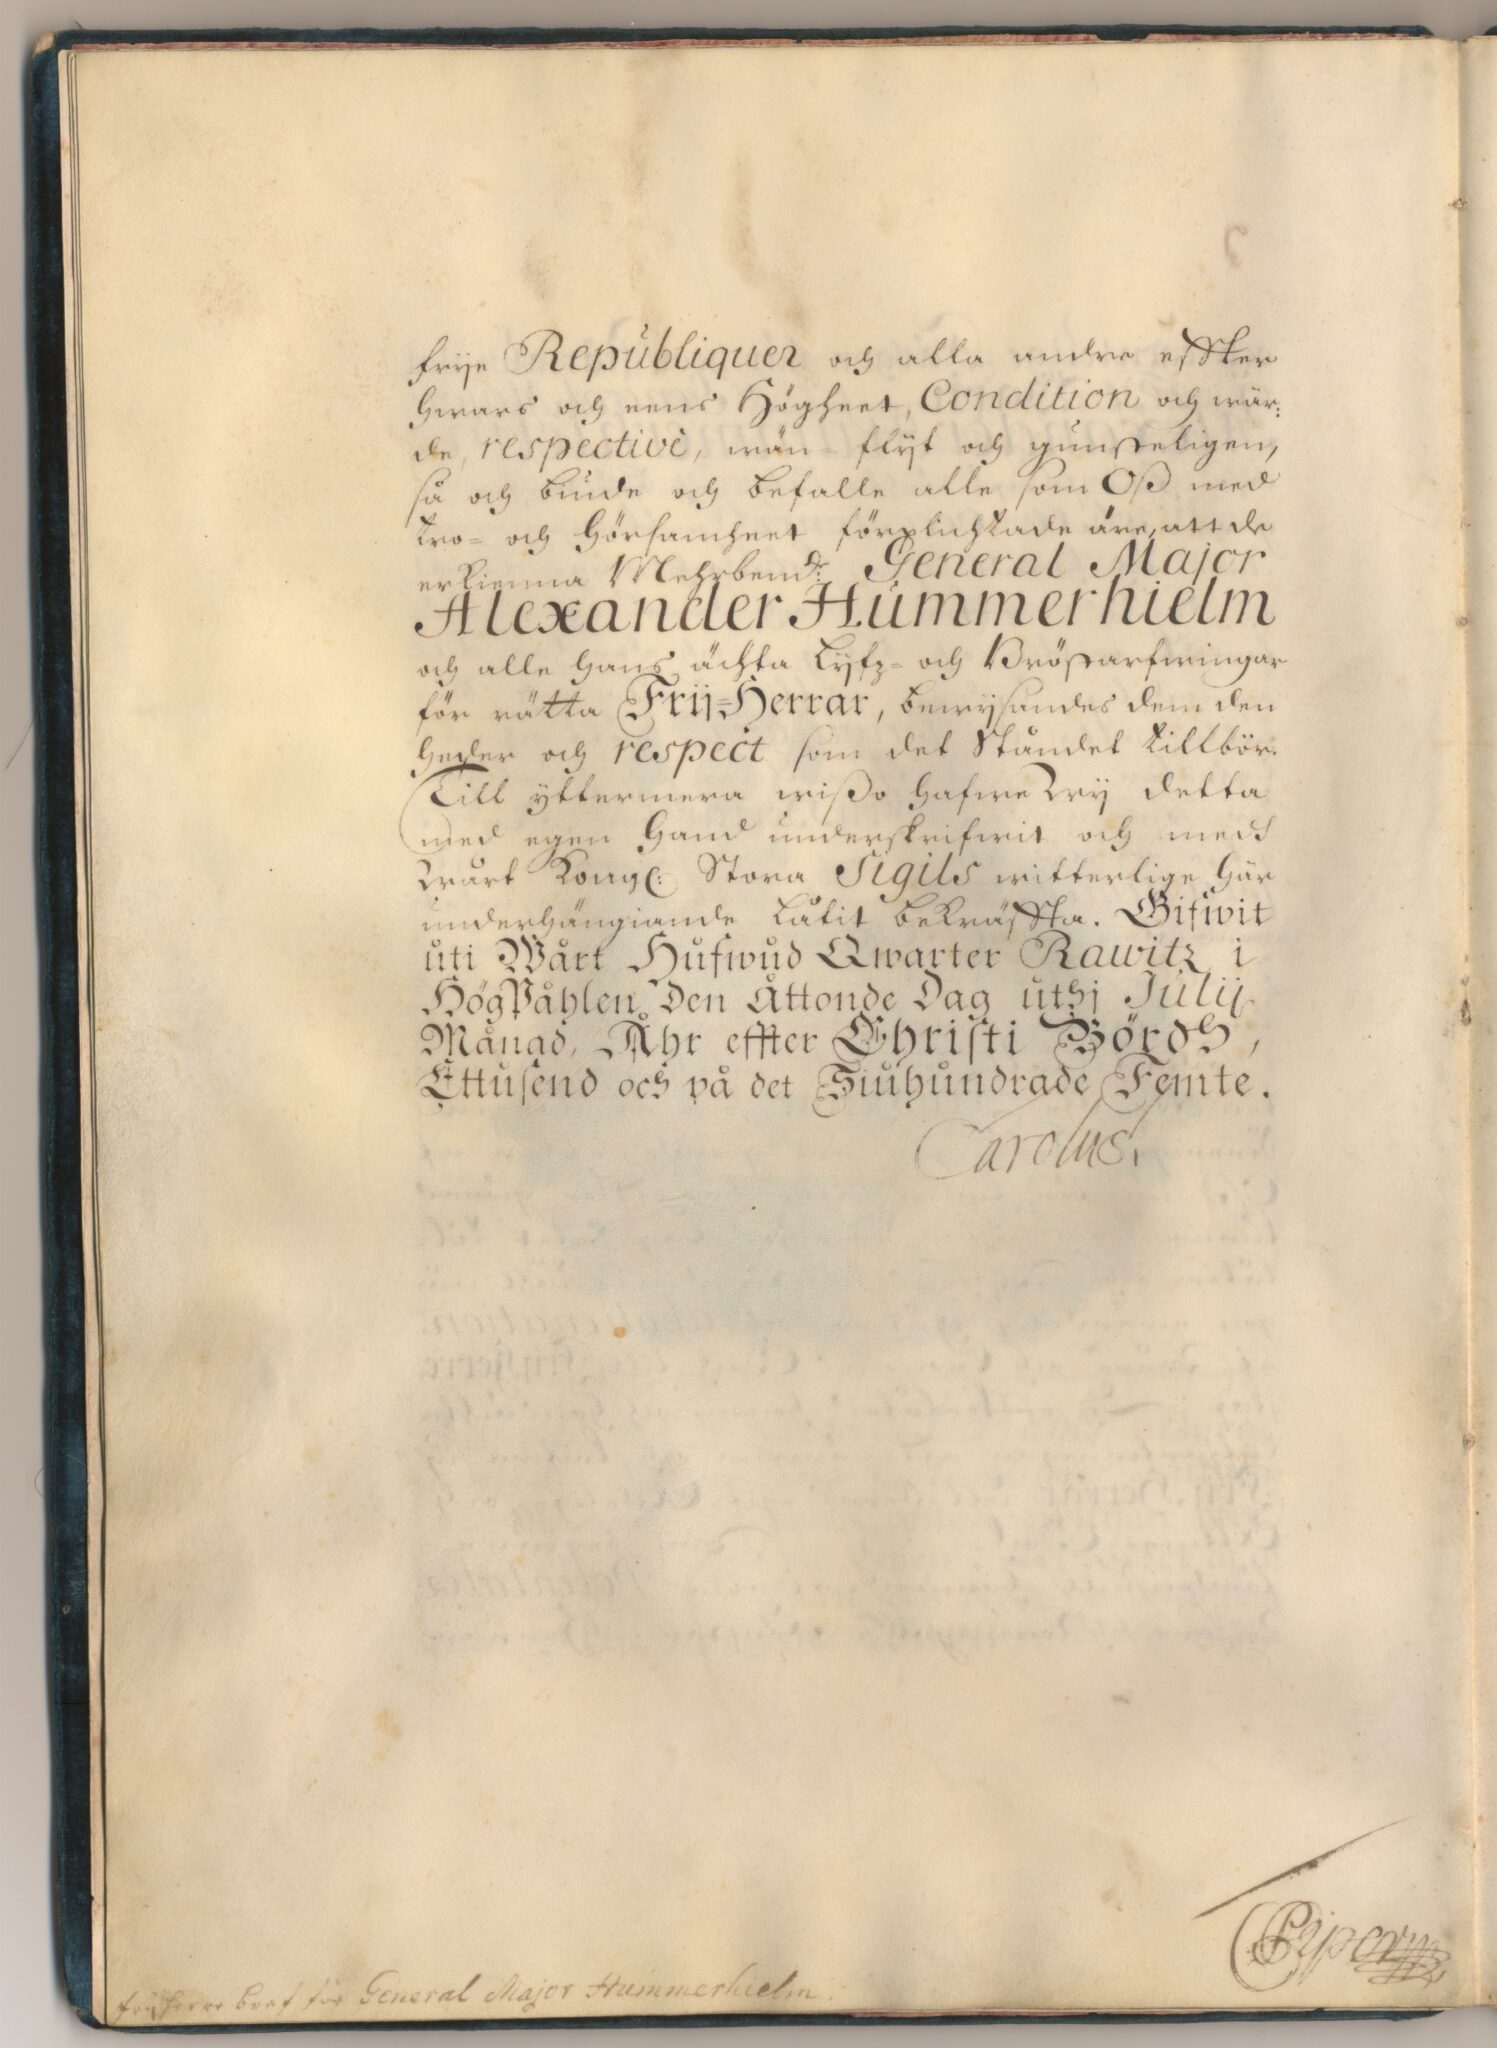 frije Republiquer och alla andre effter
hwars och eens Högheet, Condition och wär:
de, respectivè, wän-flijt och gunsteligen,
så och biude och befalle alle som Oß med
tro- och hörsamheet förplichtade äre, att de
erkienna Mehrbemd:te General Major
Alexander Hummerhielm
och alle hans ächta Lijfz- och Bröstarfwingar
för rätta Frij-Herrar, bewijsandes dem den
heder och respect som det Ståndet tillbör.
Till yttermera wißo hafwe Wij detta
med egen hand underskrifwit och medh
Wårt Kongl: Stora Sigils witterlige här
underhängiande låtit bekräffta. Gifwit
uti Wårt Hufwud Qwarter Rawitz i
HögPåhlen den Åttonde Dag uthj Julij
Månad, Åhr effter Christi Börds,
Ettusend och på det Siuhundrade Femte.
Carolus.
C Piper
frijherre bref för General Major Hummerhielm.